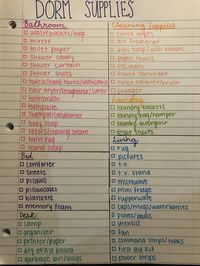 DORM SUPPLIES
Bathroom
waste baskets/bags
mirror
toilet paper
shower caddy
shower curtain
shower shoes
hair dryer/straightener/curler
toothbrush
toothpaste
shampoo/conditioner
body soap
razors/shaving cream
bath rug
hand soap
Bed
comforter
sheets
pillows
pillowcases
blankets
memory foam
Desk
lamp
organizer
printer/paper
dry erase boards
garbage bin/bags
Cleaning Supplies
air freshener
dish soap/dish brush
paper towels
vacuum
hand sanitizer
toilet cleaner/brush
plunger
Laundry
laundry baskets
laundry bag/hamper
laundry detergent
dryer sheets
Living
rug
pictures
t.v.
t.v. stand
microwave
mini fridge
silverware
cups/mugs/waterbottles
plates/bowls
utensils
fan
command strips/hooks
first aid kit
power strips